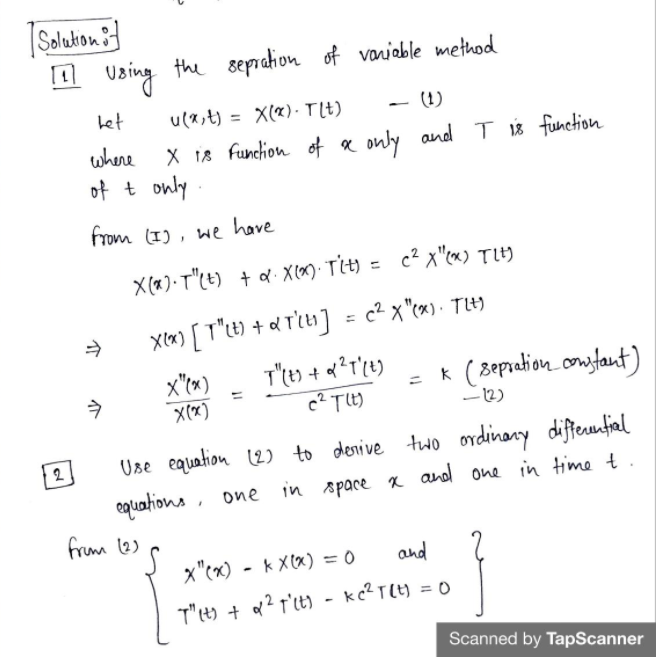 Solution:-
1 Using the sepration of variable method
Let u(x,t) = X(x). T(t) — (1)
where X is function of x only and T is function
of t only.
from (I), we have
X(x). T"(t) + α. X(x). T'(t) = c² X"(x) T(t)
⇒ X(x) [T"(t) + α T'(t)] = c² X"(x). T(t)
⇒ X"(x)/X(x) = T"(t) + α² T'(t)/c² T(t) = k (sepration constant)
— (2)
2 Use equation (2) to derive two ordinary differential
equations, one in space x and one in time t.
from (2) { X"(x) - k X(x) = 0 and
T"(t) + α² T'(t) - kc² T(t) = 0 }
Scanned by TapScanner